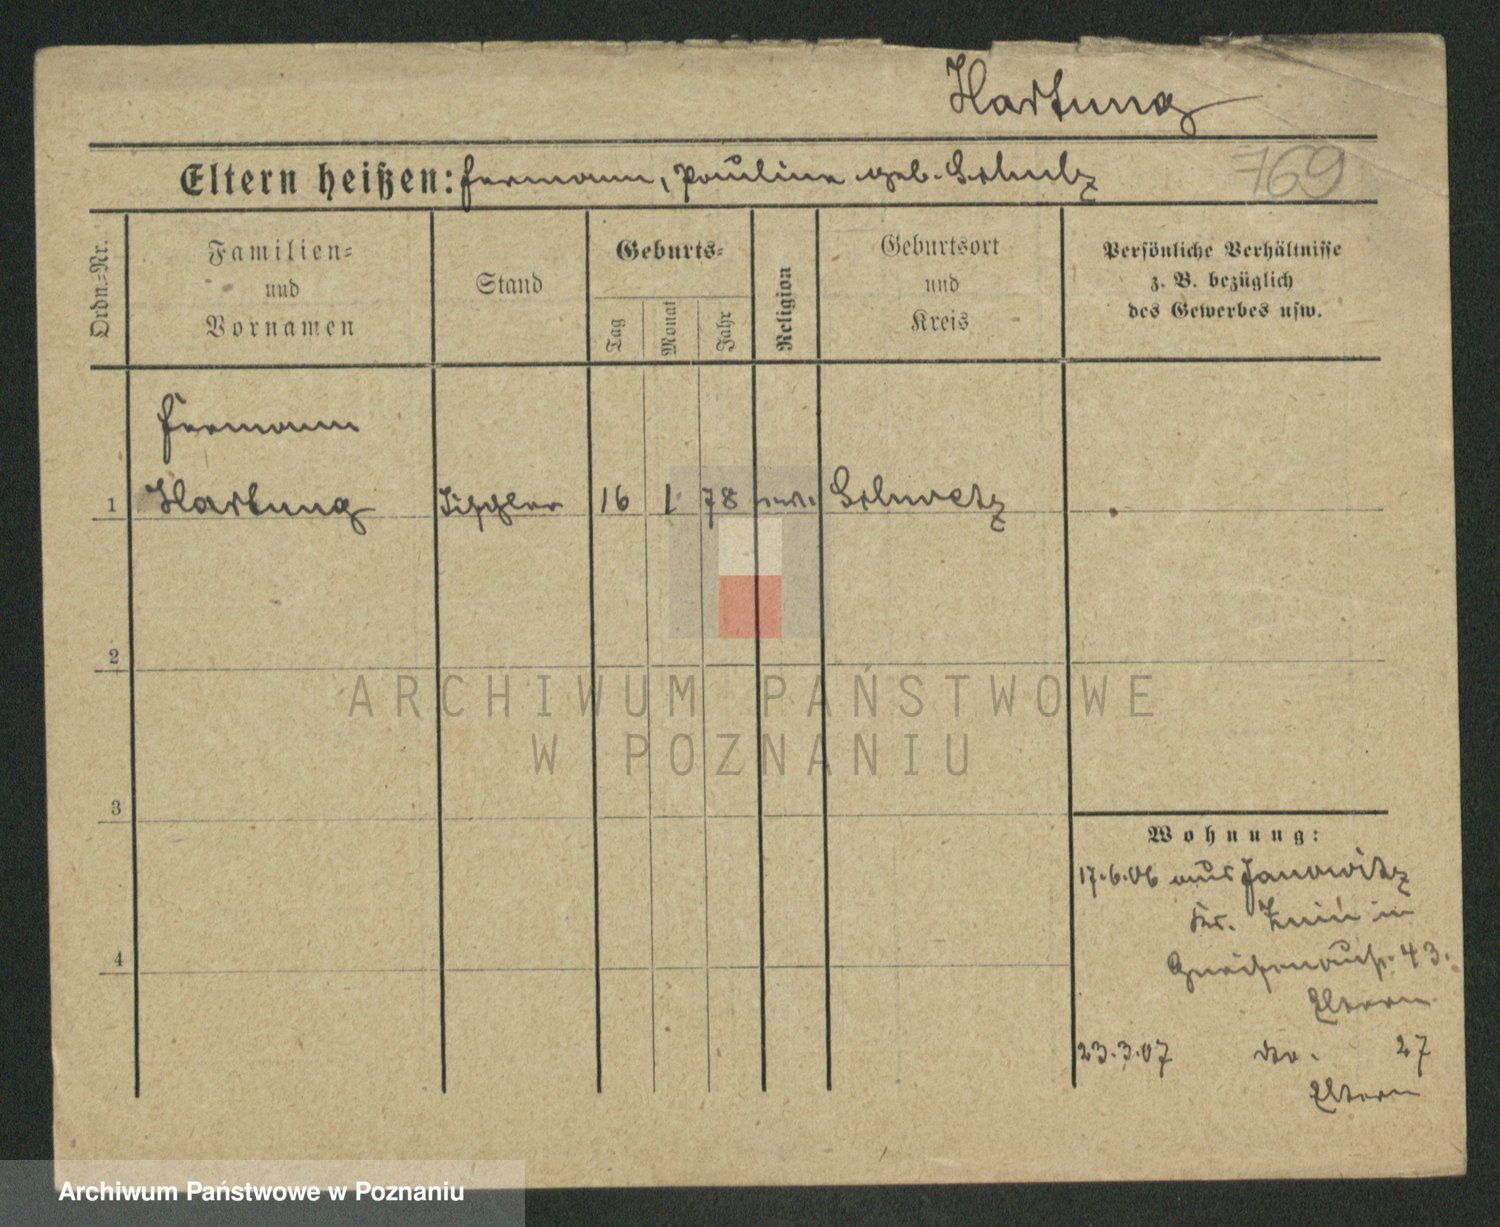 Hartung
769
Eltern heißen: Hermann, Pauline geb. Schulz
Ordn.-Nr.
Familien-
und
Vornamen
Stand
Geburts-
Tag
Monat
Jahr
Religion
Geburtsort
und
Kreis
Persönliche Verhältnisse
z. B. bezüglich
des Gewerbes usw.
Hermann
1 Hartung Tischler 16 1 78 Schwetz
2
3
4
Wohnung:
17.6.06 aus Janowitz
Kr. Znin in
Gneisenaustr. 43.
Eltern
23.3.07 do. 27
Eltern
ARCHIWUM PAŃSTWOWE
W POZNANIU
Archiwum Państwowe w Poznaniu